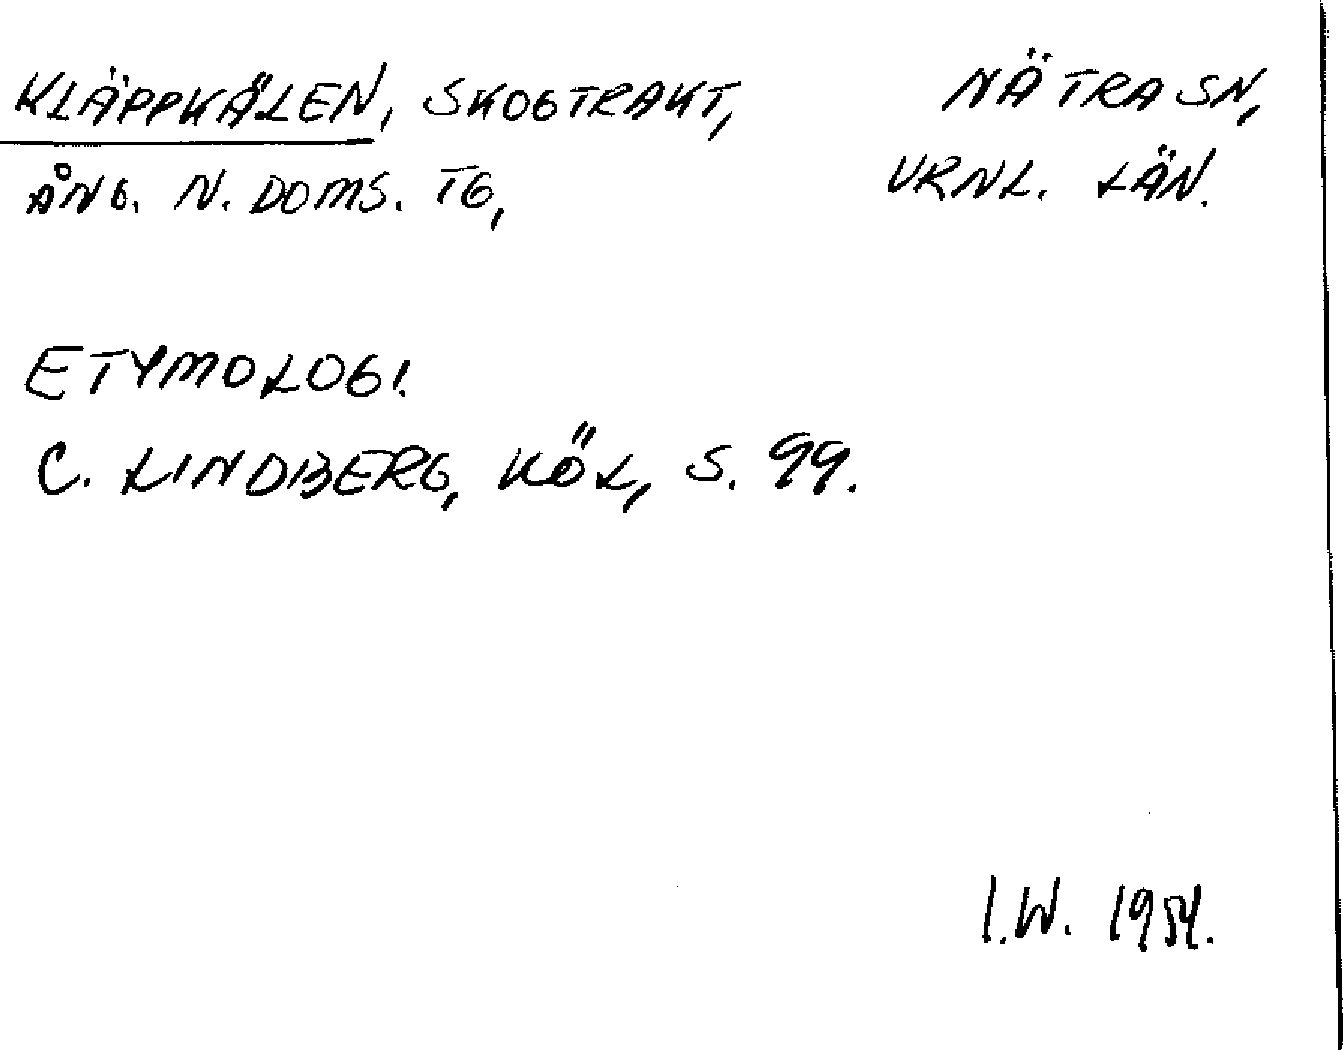 KLÄPPKÄLEN, SKOGTRAKT, NÄTRA SN,
ÅNG. N. DOMS. TG, VRNL. LÄN.
ETYMOLOGI.
C. LINDBERG, KÖL, S. 99.
I.W. 1954.